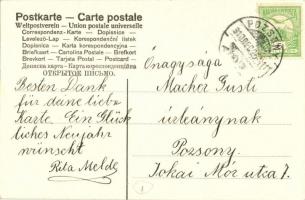 Postkarte – Carte postale
Weltpostverein – Union postale universelle
Correspondenz-Karte – Dopisnica
Levelező-Lap – Korespondenční lístek
Dopisnice – Karta korespondencyjna
Briefkaart – Cartolina Postale – Brefkort
Brevkort – Tarjeta Postal – Postcard
ОТКРЫТОЕ ПИСЬМО.
Besten Dank
für deine liebe
Karte. Ein Glück
liches Neujahr
wünscht
Rita Melde
POZSONY
Önagysága
Macher Gusti
úrleánynak
Pozsony.
Jokai Mór utca 7.